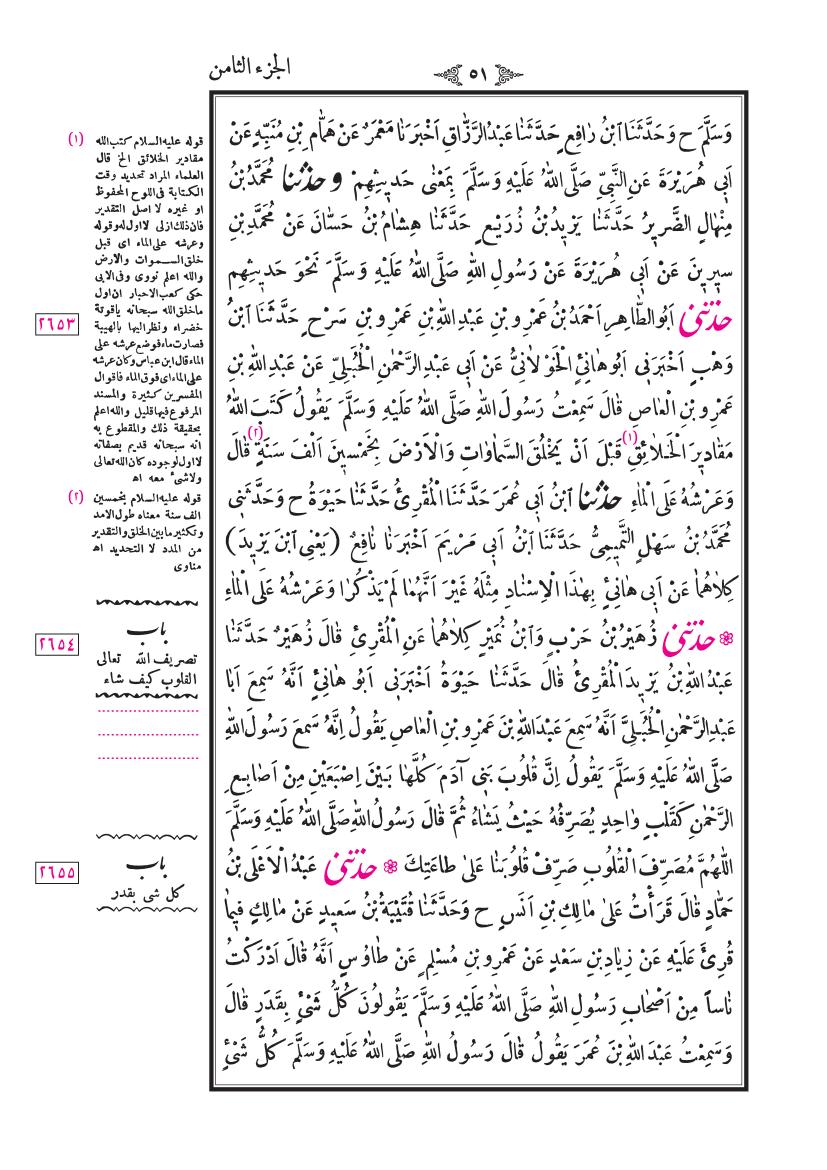 ٥١
الجزء الثامن
وَسَلَّمَ ح وَحَدَّثَنَا ابْنُ رَافِعٍ حَدَّثَنَا عَبْدُ الرَّزَّاقِ اَخْبَرَنَا مَعْمَرٌ عَنْ هَمَّامِ بْنِ مُنَبِّهٍ عَنْ
اَبِي هُرَيْرَةَ عَنِ النَّبِيِّ صَلَّى اللهُ عَلَيْهِ وَسَلَّمَ بِمَعْنٰى حَدِيثِهِمْ وحدثنا مُحَمَّدُ بْنُ
مِنْهَالٍ الضَّرِيرُ حَدَّثَنَا يَزِيدُ بْنُ زُرَيْعٍ حَدَّثَنَا هِشَامُ بْنُ حَسَّانَ عَنْ مُحَمَّدِ بْنِ
سِيرِينَ عَنْ اَبِي هُرَيْرَةَ عَنْ رَسُولِ اللهِ صَلَّى اللهُ عَلَيْهِ وَسَلَّمَ نَحْوَ حَدِيثِهِمْ
حدثنى اَبُو الطَّاهِرِ اَحْمَدُ بْنُ عَمْرِو بْنِ عَبْدِ اللهِ بْنِ عَمْرِو بْنِ سَرْحٍ حَدَّثَنَا ابْنُ
وَهْبٍ اَخْبَرَنِي اَبُو هَانِئٍ الْخَوْلَانِيُّ عَنْ اَبِي عَبْدِ الرَّحْمٰنِ الْحُبُلِيِّ عَنْ عَبْدِ اللهِ بْنِ
عَمْرِو بْنِ الْعَاصِ قَالَ سَمِعْتُ رَسُولَ اللهِ صَلَّى اللهُ عَلَيْهِ وَسَلَّمَ يَقُولُ كَتَبَ اللهُ
مَقَادِيرَ الْخَلَائِقِ (١) قَبْلَ اَنْ يَخْلُقَ السَّمَاوَاتِ وَالْاَرْضَ بِخَمْسِينَ اَلْفَ سَنَةٍ (٢) قَالَ
وَعَرْشُهُ عَلَى الْمَاءِ حدثنا ابْنُ اَبِي عُمَرَ حَدَّثَنَا الْمُقْرِئُ حَدَّثَنَا حَيْوَةُ ح وَحَدَّثَنِي
مُحَمَّدُ بْنُ سَهْلٍ التَّمِيمِيُّ حَدَّثَنَا ابْنُ اَبِي مَرْيَمَ اَخْبَرَنَا نَافِعٌ (يَعْنِي ابْنَ يَزِيدَ)
كِلَاهُمَا عَنْ اَبِي هَانِئٍ بِهٰذَا الْاِسْنَادِ مِثْلَهُ غَيْرَ اَنَّهُمَا لَمْ يَذْكُرَا وَعَرْشُهُ عَلَى الْمَاءِ
حدثنى زُهَيْرُ بْنُ حَرْبٍ وَابْنُ نُمَيْرٍ كِلَاهُمَا عَنِ الْمُقْرِئِ قَالَ زُهَيْرٌ حَدَّثَنَا
عَبْدُ اللهِ بْنُ يَزِيدَ الْمُقْرِئُ قَالَ حَدَّثَنَا حَيْوَةُ اَخْبَرَنِي اَبُو هَانِئٍ اَنَّهُ سَمِعَ اَبَا
عَبْدِ الرَّحْمٰنِ الْحُبُلِيَّ اَنَّهُ سَمِعَ عَبْدَ اللهِ بْنَ عَمْرِو بْنِ الْعَاصِ يَقُولُ اِنَّهُ سَمِعَ رَسُولَ اللهِ
صَلَّى اللهُ عَلَيْهِ وَسَلَّمَ يَقُولُ اِنَّ قُلُوبَ بَنِي آدَمَ كُلَّهَا بَيْنَ اِصْبَعَيْنِ مِنْ اَصَابِعِ
الرَّحْمٰنِ كَقَلْبٍ وَاحِدٍ يُصَرِّفُهُ حَيْثُ يَشَاءُ ثُمَّ قَالَ رَسُولُ اللهِ صَلَّى اللهُ عَلَيْهِ وَسَلَّمَ
اللّٰهُمَّ مُصَرِّفَ الْقُلُوبِ صَرِّفْ قُلُوبَنَا عَلٰى طَاعَتِكَ حدثنى عَبْدُ الْاَعْلَى بْنُ
حَمَّادٍ قَالَ قَرَأْتُ عَلٰى مَالِكِ بْنِ اَنَسٍ ح وَحَدَّثَنَا قُتَيْبَةُ بْنُ سَعِيدٍ عَنْ مَالِكٍ فِيمَا
قُرِئَ عَلَيْهِ عَنْ زِيَادِ بْنِ سَعْدٍ عَنْ عَمْرِو بْنِ مُسْلِمٍ عَنْ طَاوُسٍ اَنَّهُ قَالَ اَدْرَكْتُ
نَاساً مِنْ اَصْحَابِ رَسُولِ اللهِ صَلَّى اللهُ عَلَيْهِ وَسَلَّمَ يَقُولُونَ كُلُّ شَيْءٍ بِقَدَرٍ قَالَ
وَسَمِعْتُ عَبْدَ اللهِ بْنَ عُمَرَ يَقُولُ قَالَ رَسُولُ اللهِ صَلَّى اللهُ عَلَيْهِ وَسَلَّمَ كُلُّ شَيْءٍ
(١) قوله عليه السلام كتب الله
مقادير الخلائق الخ قال
العلماء المراد تحديد وقت
الكتابة فى اللوح المحفوظ
او غيره لا اصل التقدير
فان ذلك ازلى لا اول له وقوله
وعرشه على الماء اى قبل
خلق السموات والارض
والله اعلم نووى وفى الابى
حكى كعب الاحبار ان اول
ما خلق الله سبحانه ياقوتة
خضراء ونظر اليها بالهيبة
فصارت ماء فوضع عرشه على
الماء قال ابن عباس وكان عرشه
على الماء اى فوق الماء فاقوال
المفسرين كثيرة والمسند
المرفوع فيها قليل والله اعلم
بحقيقة ذلك والمقطوع به
انه سبحانه قديم بصفاته
لا اول لوجوده كان الله تعالى
ولا شئ معه اه
(٢) قوله عليه السلام بخمسين
الف سنة معناه طول الامد
وتكثير ما بين الخلق والتقدير
من المدد لا التحديد اه
مناوى
باب
تصريف الله تعالى
القلوب كيف شاء
باب
كل شى بقدر
٢٦٥٣
٢٦٥٤
٢٦٥٥